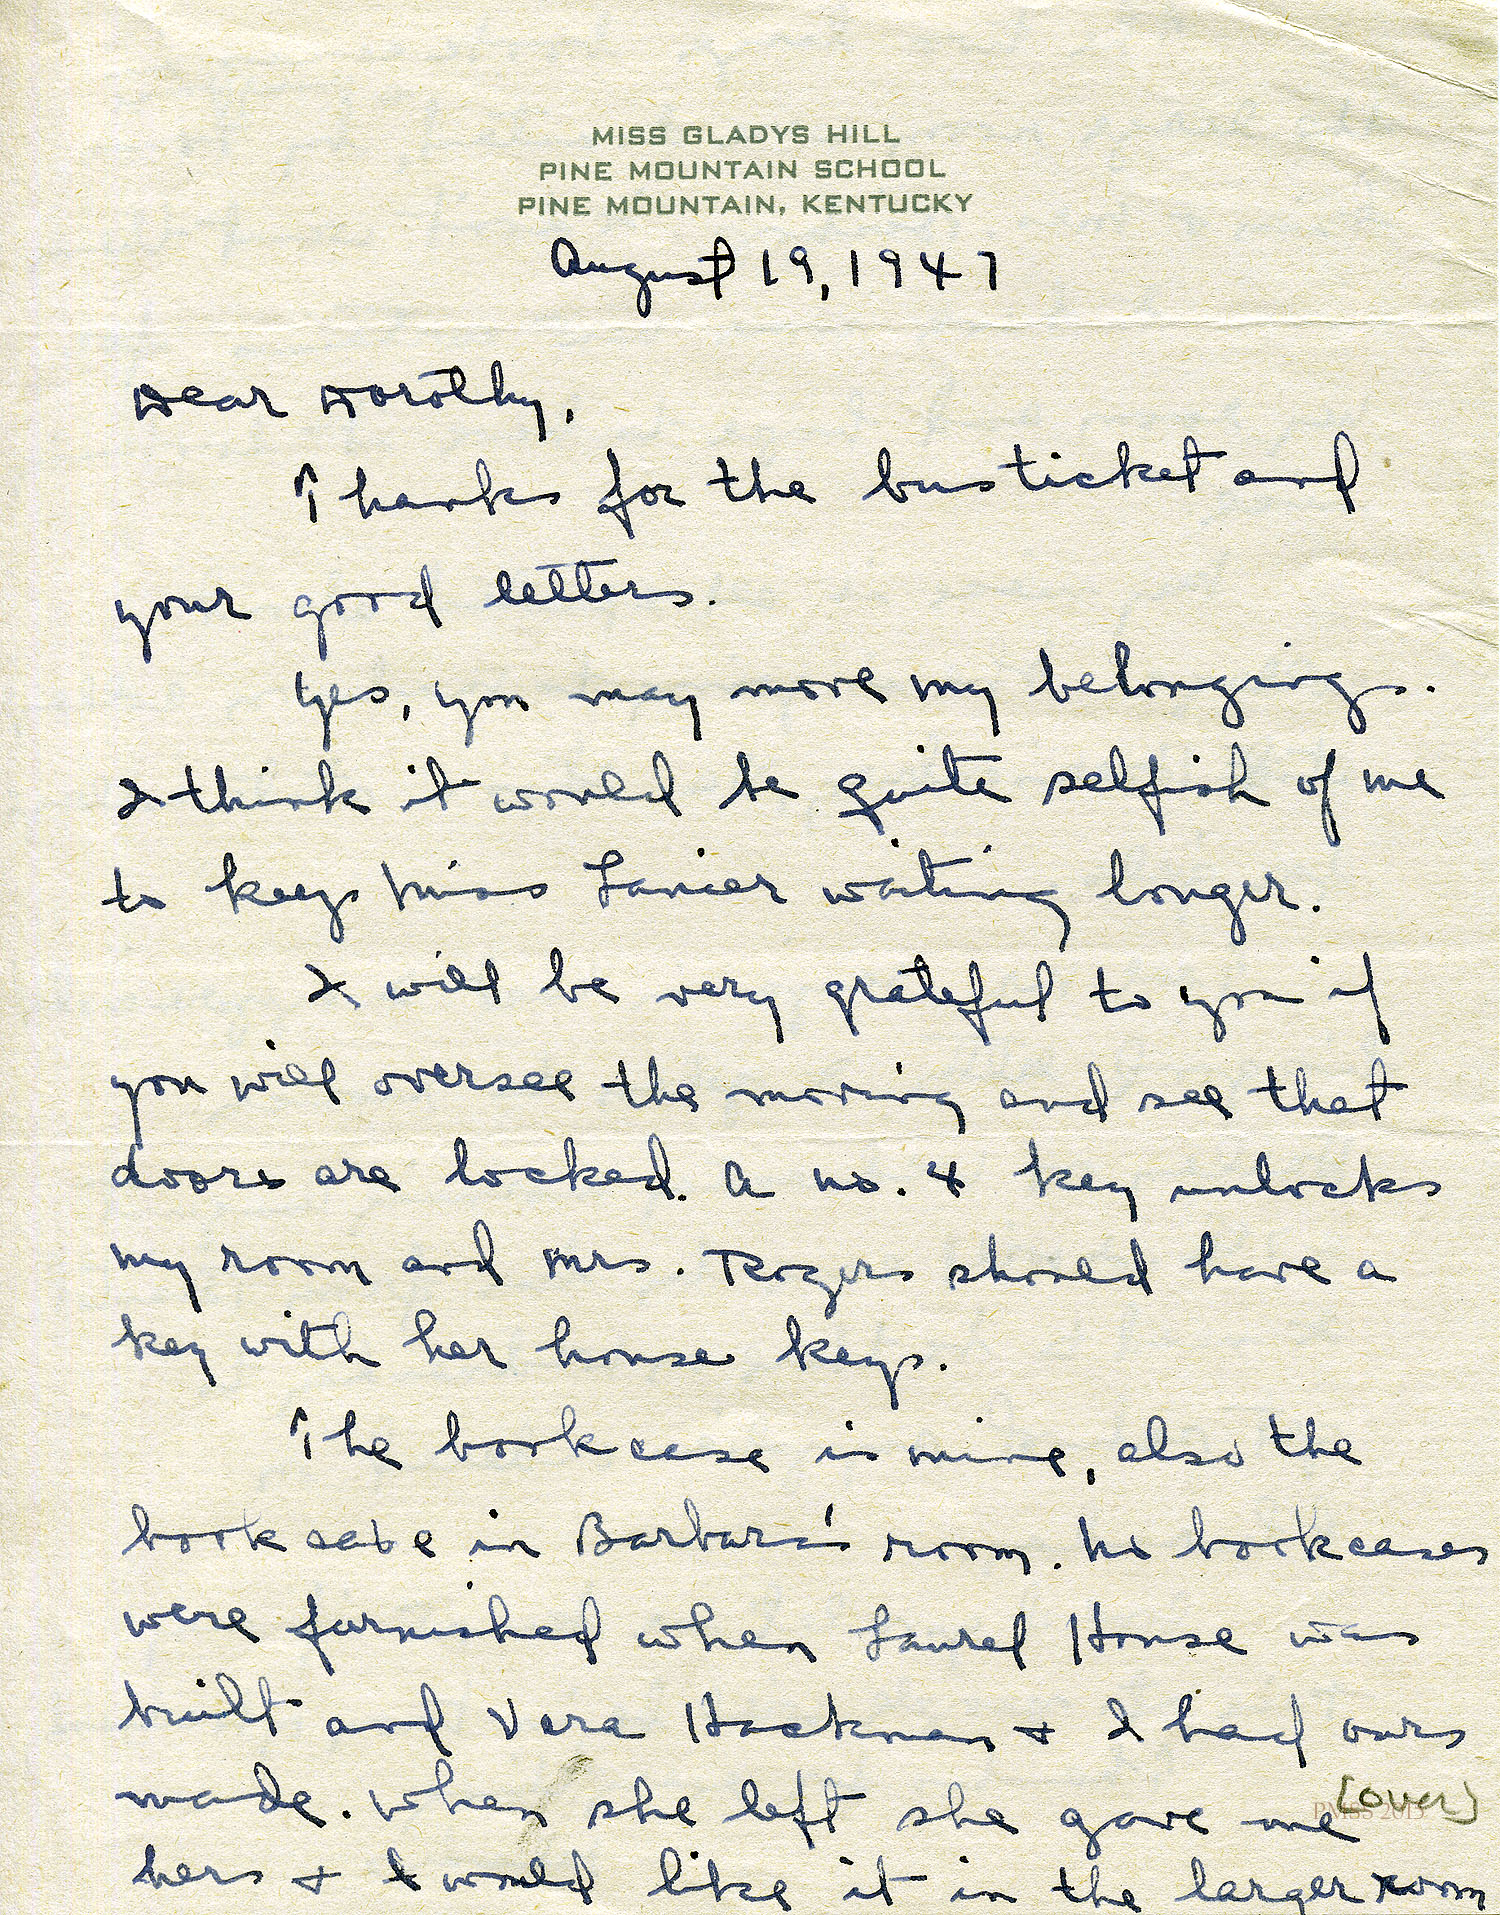 MISS GLADYS HILL
PINE MOUNTAIN SCHOOL
PINE MOUNTAIN, KENTUCKY
August 19, 1947
Dear Dorothy,
Thanks for the bus ticket and
your good letters.
Yes, you may move my belongings.
I think it would be quite selfish of me
to keep Miss Lanier waiting longer.
I will be very grateful to you if
you will oversee the moving and see that
doors are locked. A no. 4 key unlocks
my room and Mrs. Rogers should have a
key with her house keys.
The bookcase is mine, also the
bookcase in Barbara's room. No bookcases
were furnished when Laurel House was
built and Vera Hackman + I had ours
made. When she left she gave me
(over)
PMSS 2015
hers + I would like it in the larger room